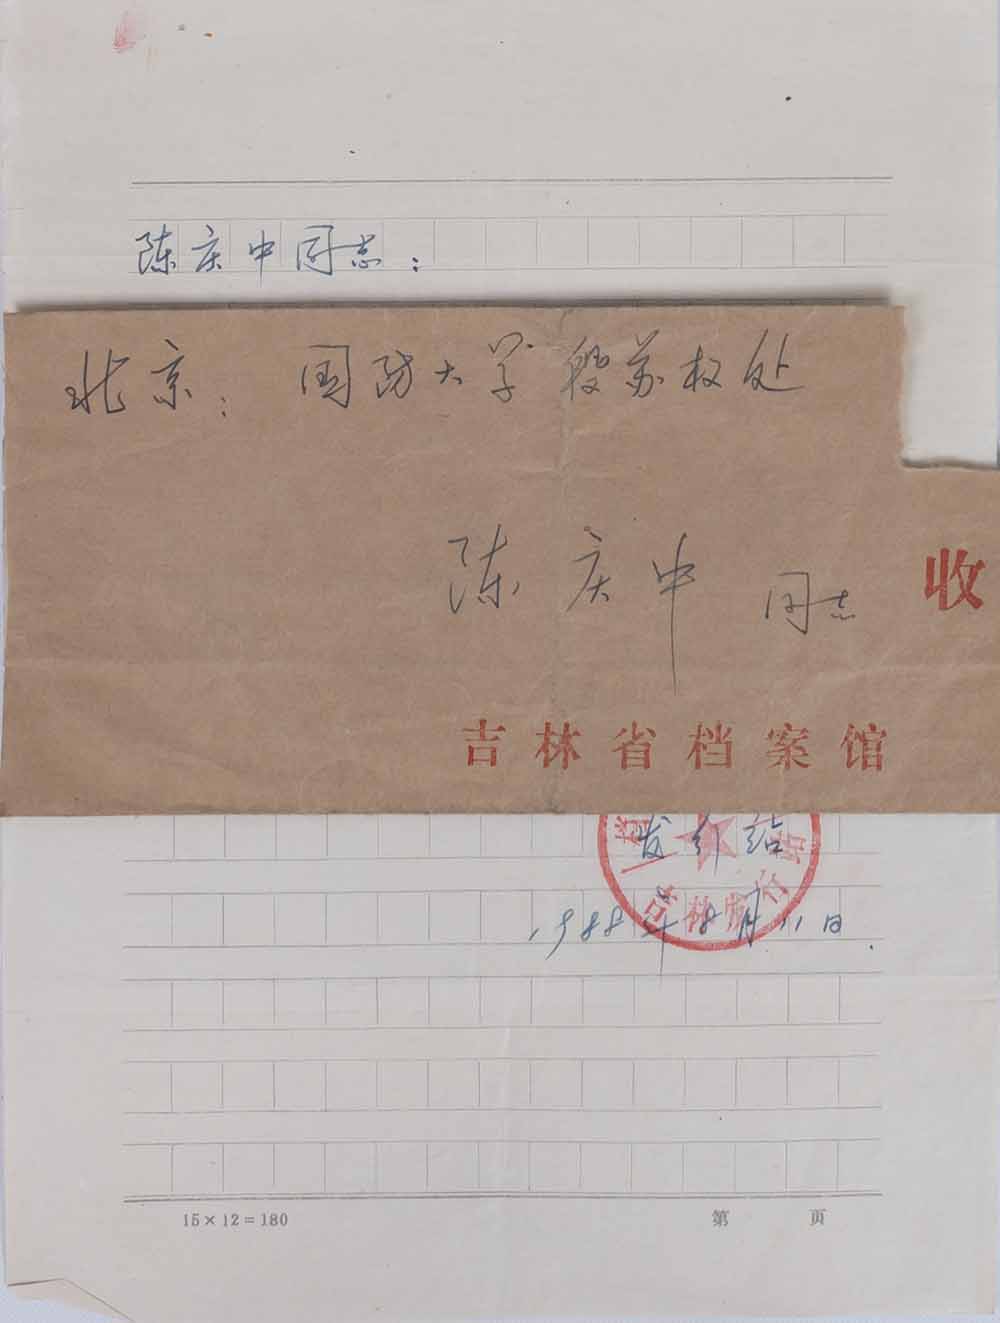 陈庆中同志：
北京：国防大学段苏权处
陈庆中同志 收
吉林省档案馆
发行站
1988年8月11日.
15×12=180 第 页